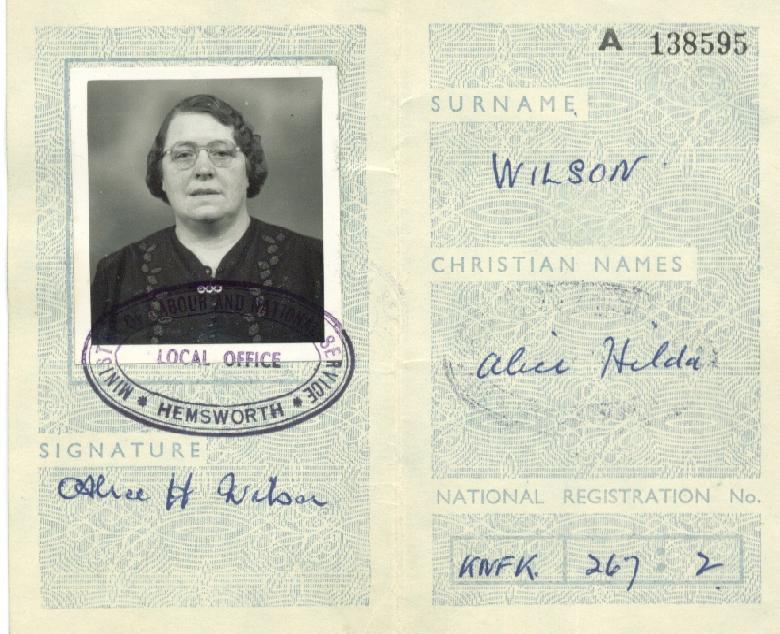 A 138595
SURNAME
WILSON
CHRISTIAN NAMES
Alice Hilda
NATIONAL REGISTRATION No.
KNFK. 267 : 2
MINISTRY OF LABOUR AND NATIONAL SERVICE
LOCAL OFFICE
* HEMSWORTH *
SIGNATURE
Alice H Wilson